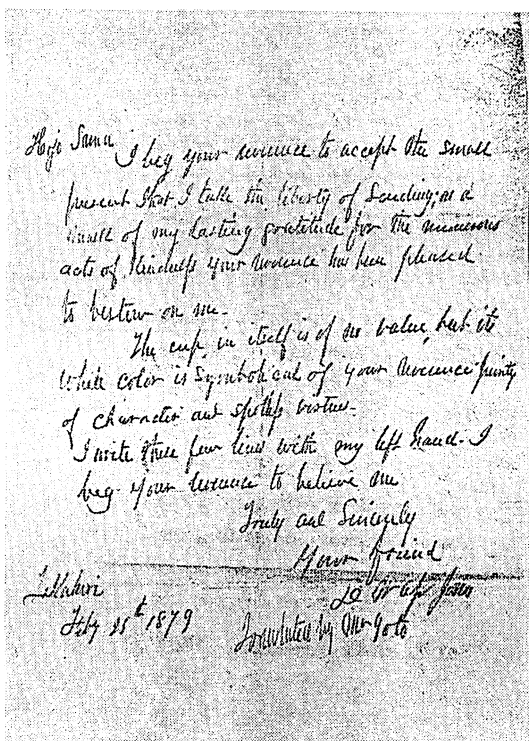 Hojo Sama
I beg your reverence to accept the small
present that I take the liberty of sending, as a
of my lasting gratitude for the numerous
acts of kindness your reverence has been pleased
to bestow on me.
The cup in itself is of no value, but its
white color is symbolical of your reverence purity
of character and spotless virtues.
I write these few lines with my left hand. I
beg your reverence to believe me
Truly and Sincerely
Your friend
Feby 25th 1879
Translated by Goto